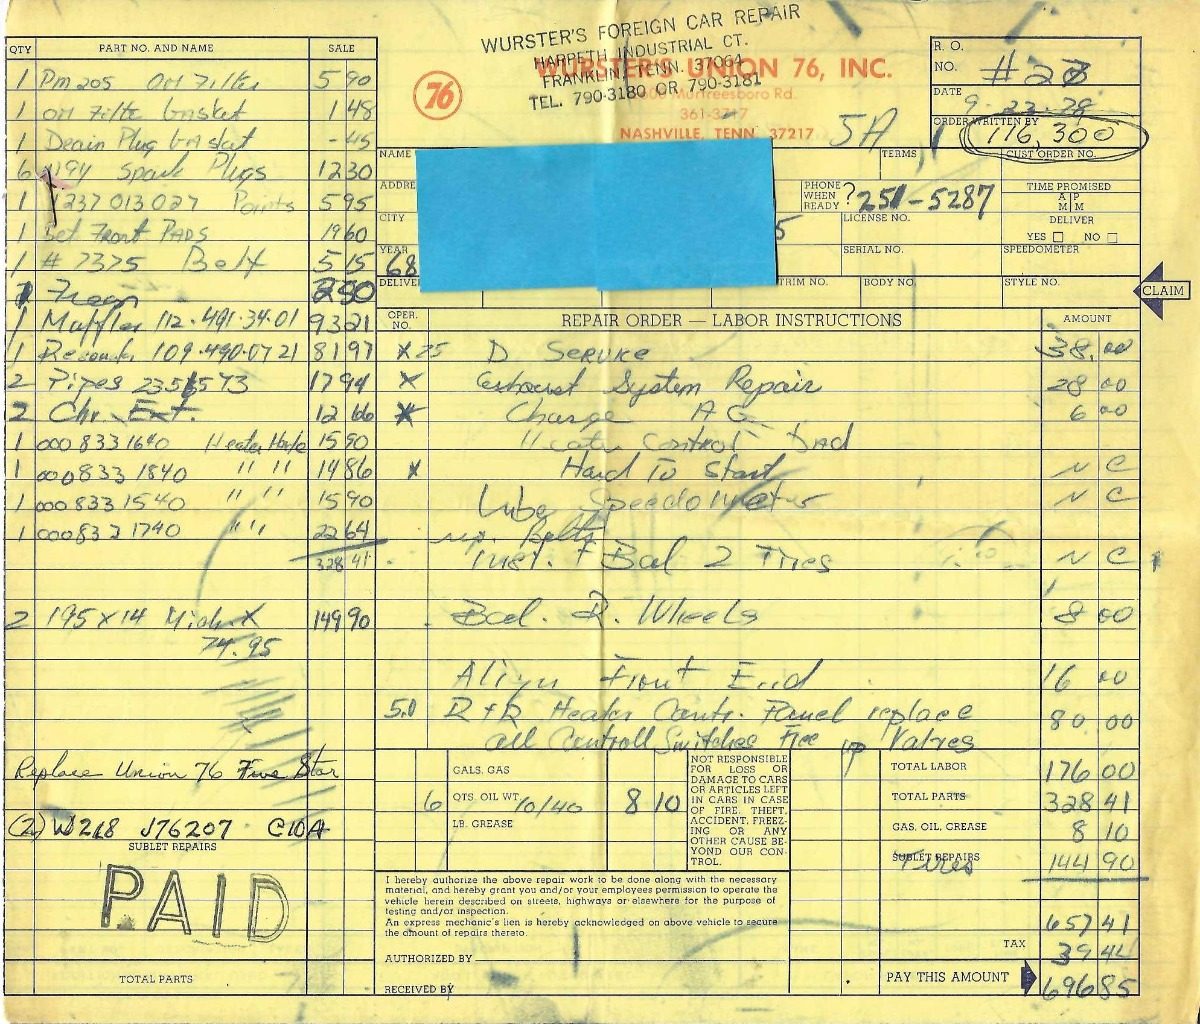 WURSTER'S FOREIGN CAR REPAIR
HARPETH INDUSTRIAL CT.
FRANKLIN, TENN. 37064
TEL. 790-3180 OR 790-3181
76
WURSTER'S UNION 76, INC.
Murfreesboro Rd.
361-3717
NASHVILLE, TENN 37217
5A
R. O. NO. #27
DATE 9-23-78
ORDER WRITTEN BY 116,300
NAME TERMS CUST ORDER NO.
ADDRE PHONE WHEN READY ? 251-5287 TIME PROMISED
A M P M
CITY 5 LICENSE NO. DELIVER
YES NO
YEAR 68 SERIAL NO. SPEEDOMETER
DELIVER TRIM NO. BODY NO. STYLE NO.
CLAIM
QTY PART NO. AND NAME SALE
1 PM 205 Oil Filter 5 90
1 Oil Filte Gasket 1 48
1 Drain Plug Gasket -45
6 N19Y Spark Plugs 12 30
1 1237 013 027 Points 5 95
1 Set Front PADS 19 60
1 # 7375 Belt 5 15
1 Freon 2 50
1 Muffler 112·491·34·01 93 21
1 Resonator 109·490·07 21 81 97
2 Pipes 17 94
2 Chr. Ext. 12 66
1 000 833 1640 Heater Hose 15 90
1 000 833 1840 " " 14 86
1 000 833 1540 " " 15 90
1 000 833 1740 " " 22 64
328 41
2 195 x 14 Mich X 149 90
74.95
Replace Union 76 Five Star
(2) W218 J76207 C10A
SUBLET REPAIRS
PAID
TOTAL PARTS
OPER. NO. REPAIR ORDER — LABOR INSTRUCTIONS AMOUNT
x 25 D Service 38.00
x Exhaust System Repair 28 00
x Charge AC 6 00
Heater Control bad
x Hard To Start N C
Lube Speedometer N C
Belts
Inst. + Bal 2 Tires N C
Bal. R. Wheels 8 00
Align Front End 16 00
5.0 R+R Heater Contr. Panel replace 80 00
all Controll Switches Free up Valves
GALS. GAS
6 QTS. OIL WT. 10/40 8 10
LB. GREASE
NOT RESPONSIBLE
FOR LOSS OR
DAMAGE TO CARS
OR ARTICLES LEFT
IN CARS IN CASE
OF FIRE, THEFT,
ACCIDENT, FREEZ-
ING OR ANY
OTHER CAUSE BE-
YOND OUR CON-
TROL.
TOTAL LABOR 176 00
TOTAL PARTS 328 41
GAS, OIL, GREASE 8 10
SUBLET REPAIRS Tires 144 90
657 41
TAX 39 44
PAY THIS AMOUNT 696 85
I hereby authorize the above repair work to be done along with the necessary
material, and hereby grant you and/or your employees permission to operate the
vehicle herein described on streets, highways or elsewhere for the purpose of
testing and/or inspection.
An express mechanic's lien is hereby acknowledged on above vehicle to secure
the amount of repairs thereto.
AUTHORIZED BY
RECEIVED BY